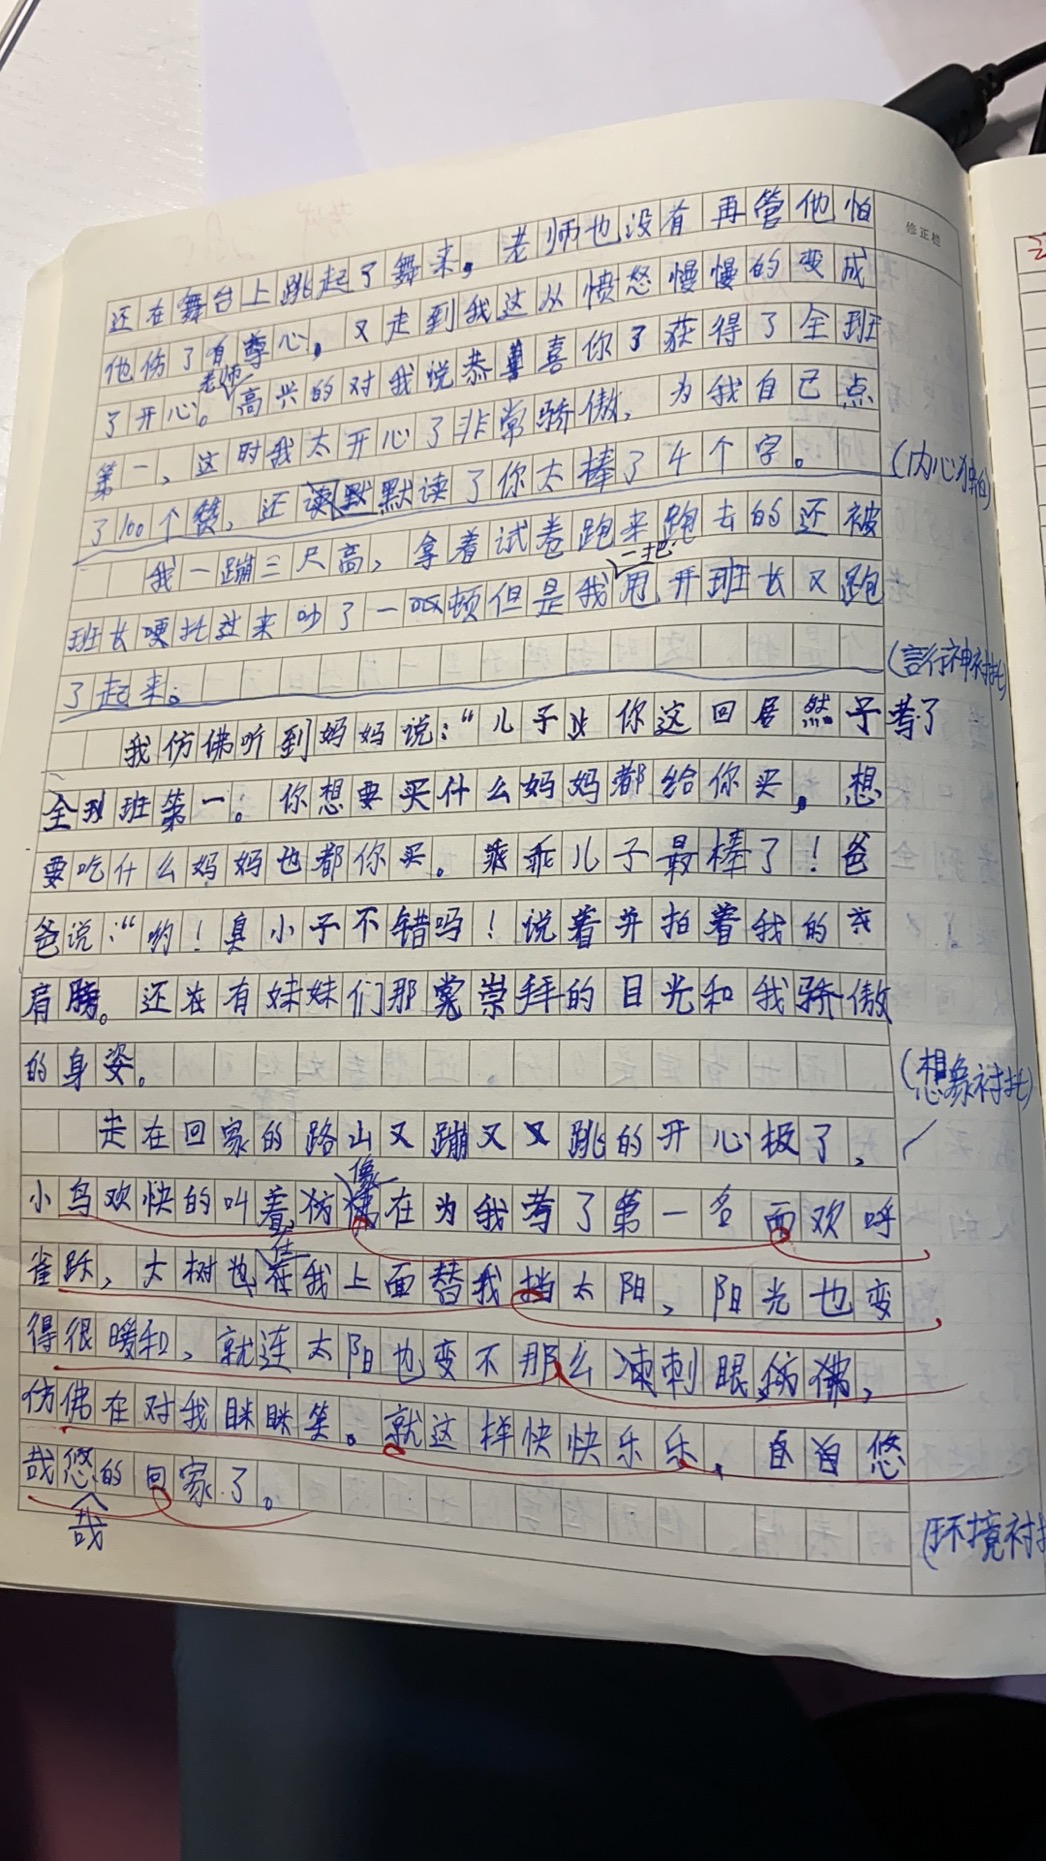 修正栏
还在舞台上跳起了舞来。老师也没有再管他怕
他伤了自尊心。又走到我这从愤怒慢慢的变成
了开心。老师高兴的对我说恭喜你了获得了全班
第一、这时我太开心了非常骄傲、为我自己点
了100个赞，还默默读了你太棒了4个字。
(内心独白)
我一蹦三尺高，拿着试卷跑来跑去的还被
班长哽托过来吵了一顿但是我一把甩开班长又跑
了起来。
(言行神衬托)
我仿佛听到妈妈说：“儿子 你这回居然 考了
全班第一。你想要买什么妈妈都给你买，想
要吃什么妈妈也都你买。乖乖儿子最棒了！爸
爸说：“哟！臭小子不错吗！说着并拍着我的
肩膀。还在有妹妹们那崇拜的目光和我骄傲
的身姿。
(想象衬托)
走在回家的路山又蹦又跳的开心极了，
小鸟欢快的叫着，仿像在为我考了第一名而欢呼
雀跃，大树也在我上面替我挡太阳、阳光也变
得很暖和、就连太阳也变不那么刺眼，
仿佛在对我眯眯笑。就这样快快乐乐、自自悠
哉悠哉的回家了。
(环境衬托